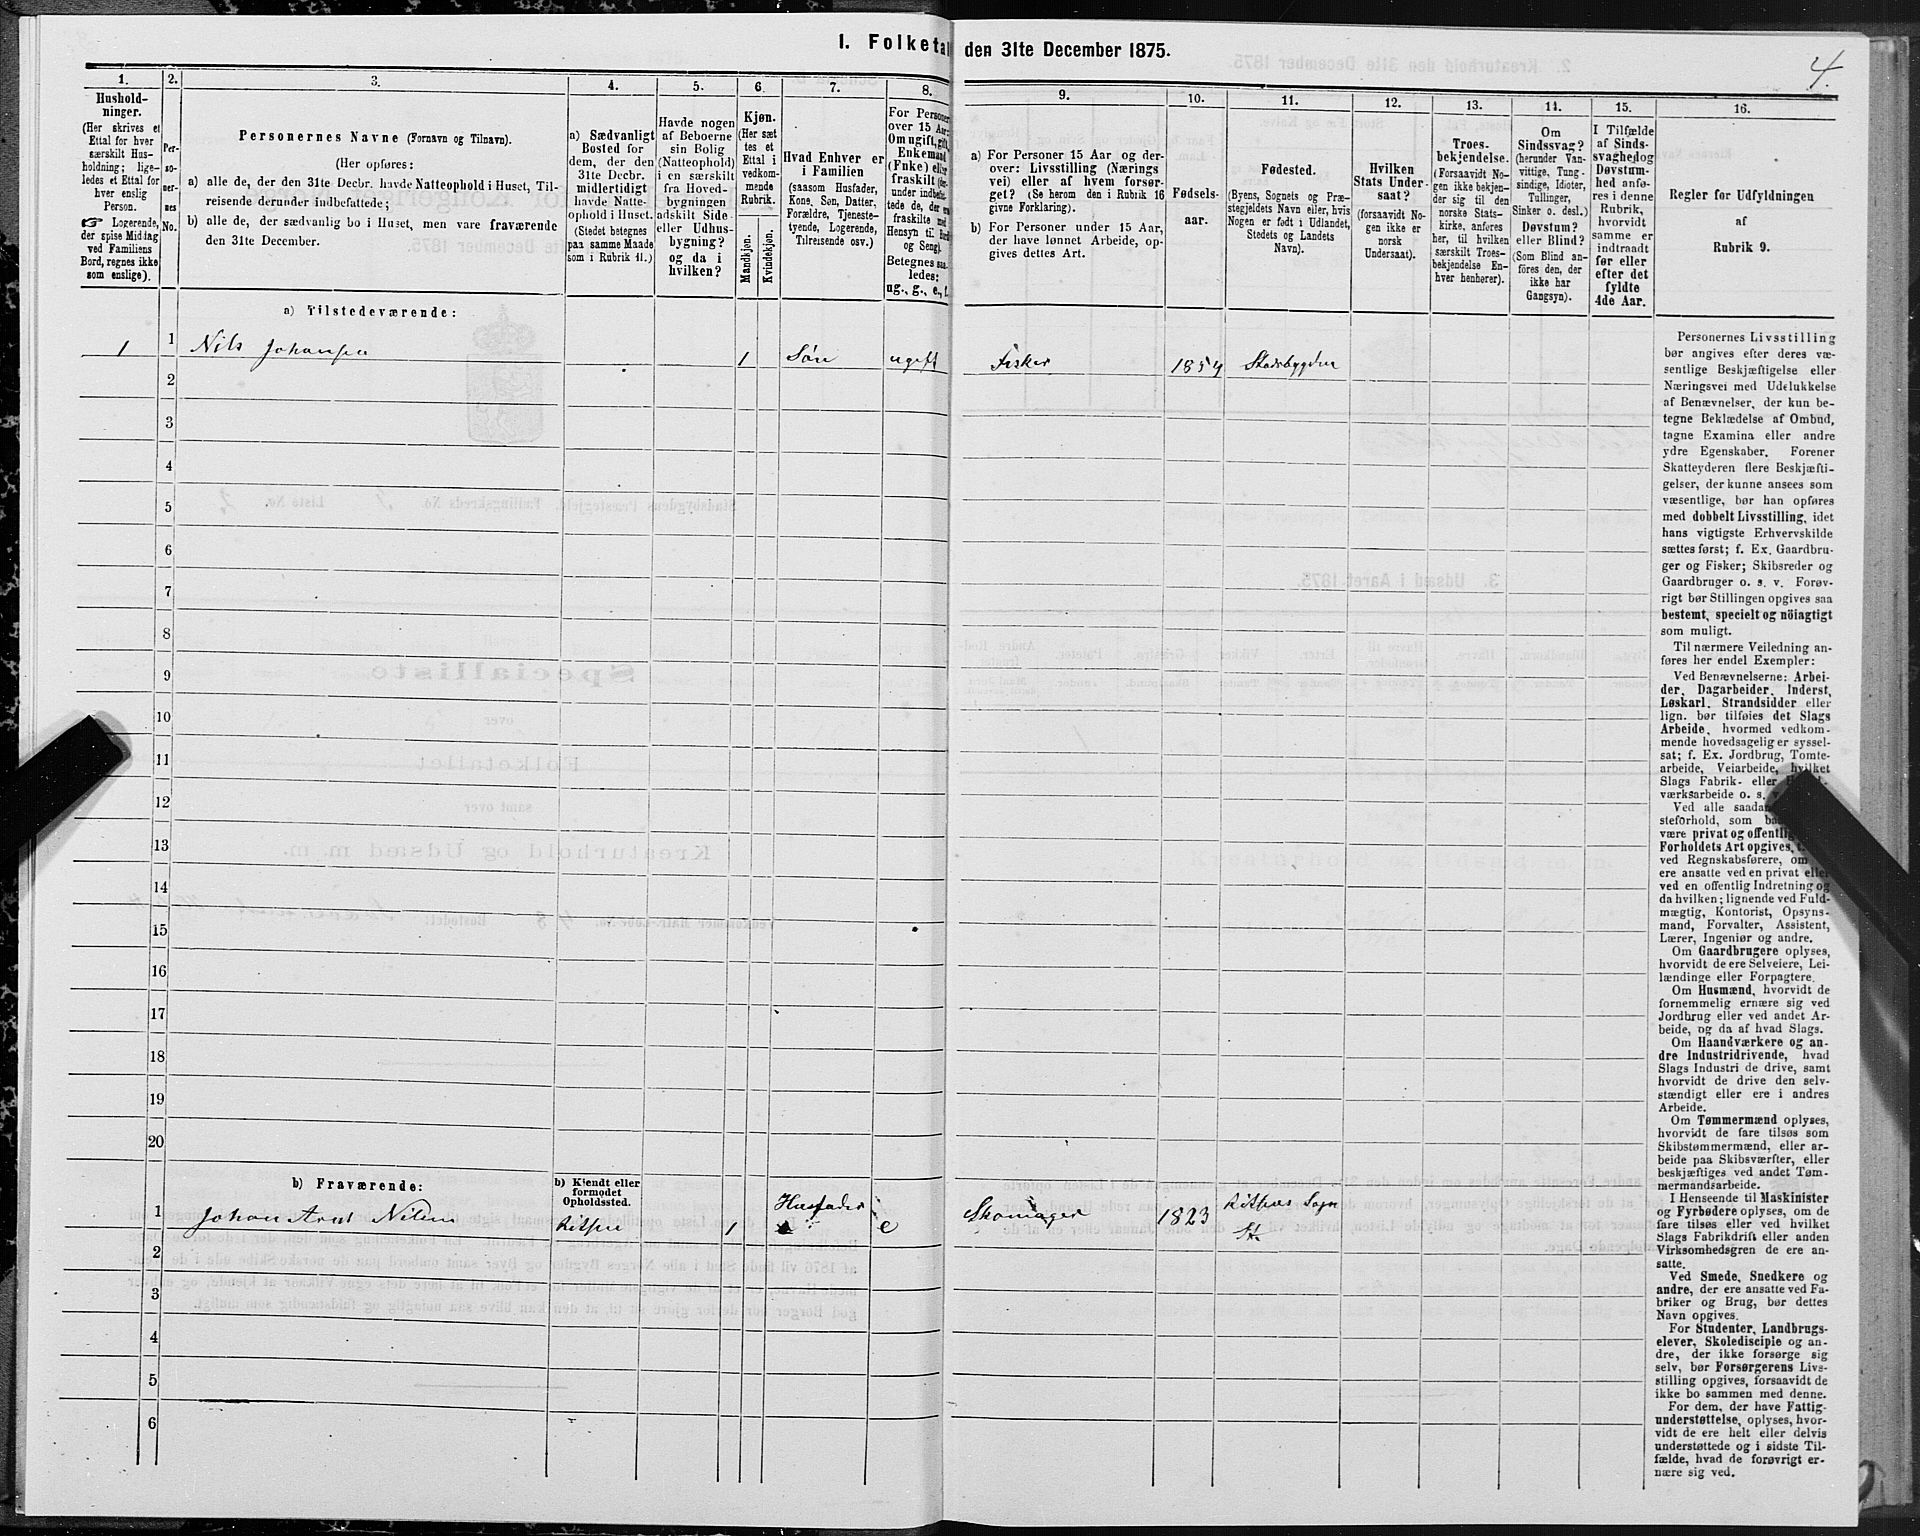 1. Folketal den 31te December 1875.
4.
1.
Hushold-
ninger.
(Her skrives et
Ettal for hver
særskilt Hus-
holdning; lige-
ledes et Ettal for
hver enslig
Person.
Logerende,
der spise Middag
ved Familiens
Bord, regnes ikke
som enslige).
2.
Per-
so-
ner-
nes
No.
3.
Personernes Navne (Fornavn og Tilnavn).
(Her opføres:
a) alle de, der den 31te Decbr. havde Natteophold i Huset, Til-
reisende derunder indbefattede;
b) alle de, der sædvanlig bo i Huset, men vare fraværende
den 31te December.
4.
a) Sædvanligt
Bosted for
dem, der den
31te Decbr.
midlertidigt
havde Natte-
ophold i Huset.
(Stedet betegnes
paa samme Maade
som i Rubrik 11.)
5.
Havde nogen
af Beboerne
sin Bolig
(Natteophold)
i en særskilt
fra Hoved-
bygningen
adskilt Side-
eller Udhus-
bygning?
og da i
hvilken?
6.
Kjøn.
(Her sæt
tes et
Ettal i
vedkom-
mende
Rubrik.
Mandkjøn.
Kvindekjøn.
7.
Hvad Enhver er
i Familien
(saasom Husfader,
Kone, Søn, Datter,
Forældre, Tjeneste-
tyende, Logerende,
Tilreisende osv.)
8.
For Personer
over 15 Aar:
Om ugift, gift,
Enkemand
(Enke) eller
fraskilt (der-
under indbefat-
tede de, der ere
fraskilte med
Hensyn til Bord
og Seng).
Betegnes saa-
ledes:
ug., g., e., f.
9.
a) For Personer 15 Aar og der-
over: Livsstilling (Nærings
vei) eller af hvem forsør-
get? (Se herom den i Rubrik 16
givne Forklaring).
b) For Personer under 15 Aar,
der have lønnet Arbeide, op-
gives dettes Art.
10.
Fødsels-
aar.
11.
Fødested.
(Byens, Sognets og Præ-
stegjeldets Navn eller, hvis
Nogen er født i Udlandet,
Stedets og Landets
Navn).
12.
Hvilken
Stats Under-
saat?
(forsaavidt No-
gen ikke er
norsk
Undersaat).
13.
Troes-
bekjendelse.
(Forsaavidt No-
gen ikke bekjen-
der sig til den
norske Stats-
kirke, anføres
her, til hvilken
særskilt Troes-
bekjendelse En-
hver henhører).
14.
Om
Sindssvag?
(herunder Van-
vittige, Tung-
sindige, Idioter,
Tullinger,
Sinker o. desl.)
Døvstum?
eller Blind?
(Som Blind an-
føres den, der
ikke har
Gangsyn).
15.
I Tilfælde
af Sinds-
svaghed og
Døvstum-
hed anfø-
res i denne
Rubrik,
hvorvidt
samme er
indtraadt
før eller
efter det
fyldte
4de Aar.
16.
Regler for Udfyldningen
af
Rubrik 9.
a) Tilstedeværende:
1 1 Nils Johansen 1 Søn ugift Fisker 1854 Stadsbygden
2
3
4
5
6
7
8
9
10
11
12
13
14
15
16
17
18
19
20
b) Fraværende:
b) Kjendt eller
formodet
Opholdssted.
1 Johan Arnt Nilsen Rissen 1 Husfader e Skomager 1823 Rissens Sogn
St.
2
3
4
5
6
Personernes Livsstilling
bør angives efter deres væ-
sentlige Beskjæftigelse eller
Næringsvei med Udelukkelse
af Benævnelser, der kun be-
tegne Beklædelse af Ombud,
tagne Examina eller andre
ydre Egenskaber. Forener
Skatteyderen flere Beskjæfti-
gelser, der kunne ansees som
væsentlige, bør han opføres
med dobbelt Livsstilling, idet
hans vigtigste Erhvervskilde
sættes først; f. Ex. Gaardbru-
ger og Fisker; Skibsreder og
Gaardbruger o. s. v. Forøv-
rigt bør Stillingen opgives saa
bestemt, specielt og nöiagtigt
som muligt.
Til nærmere Veiledning an-
føres her endel Exempler:
Ved Benævnelserne: Arbei-
der, Dagarbeider, Inderst,
Løskarl, Strandsidder eller
lign. bør tilføies det Slags
Arbeide, hvormed vedkom-
mende hovedsagelig er syssel-
sat; f. Ex. Jordbrug, Tomte-
arbeide, Veiarbeide, hvilket
Slags Fabrik- eller
værksarbeide o. s. v.
Ved alle
steforhold, som
være privat og offentlig
Forholdets Art opgives,
ved Regnskabsførere, om
ere ansatte ved en privat eller
ved en offentlig Indretning og
da hvilken; lignende ved Fuld-
mægtig, Kontorist, Opsyns-
mand, Forvalter, Assistent,
Lærer, Ingeniør og andre.
Om Gaardbrugere oplyses,
hvorvidt de ere Selveiere, Lei-
lændinge eller Forpagtere.
Om Husmænd, hvorvidt de
fornemmelig ernære sig ved
Jordbrug eller ved andet Ar-
beide, og da af hvad Slags.
Om Haandværkere og an-
dre Industridrivende, hvad
Slags Industri de drive, samt
hvorvidt de drive den selv-
stændigt eller ere i andres
Arbeide.
Om Tømmermænd oplyses,
hvorvidt de fare tilsøs som
Skibstømmermænd, eller ar-
beide paa Skibsværfter, eller
beskjæftiges ved andet Tøm-
mermandsarbeide.
I Henseende til Maskinister
og Fyrbødere oplyses, om de
fare tilsøs eller ved hvilket
Slags Fabrikdrift eller anden
Virksomhedsgren de ere an-
satte.
Ved Smede, Snedkere og
andre, der ere ansatte ved Fa-
briker og Brug, bør dettes
Navn opgives.
For Studenter, Landbrugs-
elever, Skoledisciple og an-
dre, der ikke forsørge sig
selv, bør Forsørgerens Livs-
stilling opgives, forsaavidt de
ikke bo sammen med denne.
For dem, der have Fattig-
understøttelse, oplyses, hvor-
vidt de ere helt eller delvis
understøttede og i sidste Til-
fælde, hvad de forøvrigt er-
nære sig ved.